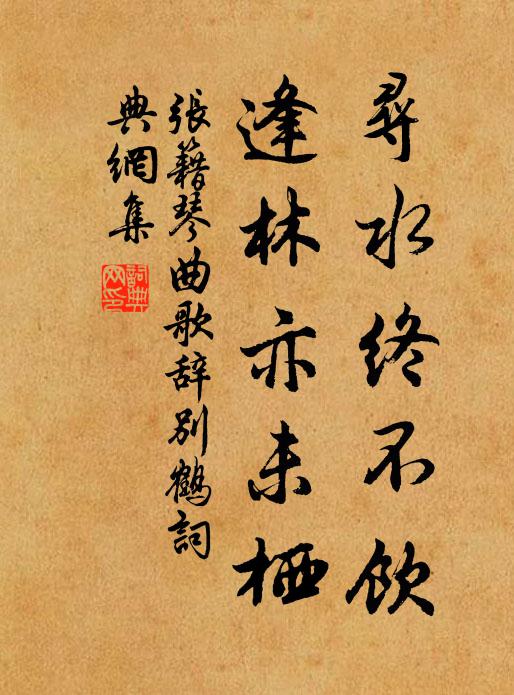 尋水終不飲
逢林亦未栖
張籍琴曲歌辞別鶴詞
典網集
詞典
网印